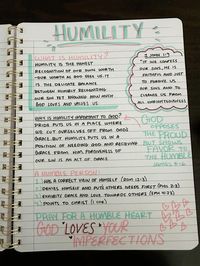 HUMILITY
WHAT IS HUMILITY?
HUMILITY IS THE HONEST
RECOGNITION OF OUR OWN WORTH
-OUR WORTH AS GOD SEES US. IT
IS THE DELICATE BALANCE
BETWEEN HUMBLY RECOGNIZING
OUR SIN YET KNOWING HOW MUCH
GOD LOVES AND VALUES US.
1 JOHN 1:9
IF WE CONFESS
OUR SINS, HE IS
FAITHFUL AND JUST
TO FORGIVE US
OUR SINS AND TO
CLEANSE US FROM
ALL UNRIGHTEOUSNESS
WHY IS HUMILITY IMPORTANT TO GOD?
PRIDE PUTS US IN A PLACE WHERE
WE CUT OURSELVES OFF FROM GOD'S
GRACE, BUT HUMILITY PUTS US IN A
POSITION OF NEEDING GOD AND RECEIVING
GRACE FROM HIM. FORGIVENESS OF
OUR SIN IS AN ACT OF GRACE
GOD
OPPOSES
THE PROUD
BUT SHOWS
FAVOR TO
THE HUMBLE
JAMES 4:6
A HUMBLE PERSON:
1 HAS A CORRECT VIEW OF HIMSELF (ROM 12:3)
2 DENIES HIMSELF AND PUTS OTHERS NEEDS FIRST (PHIL 2:3)
3 EXHIBITS GRACE AND LOVE TOWARDS OTHERS (EPH 4:32)
4 POINTS TO CHRIST
PRAY FOR A HUMBLE HEART
GOD "LOVES" YOUR
IMPERFECTIONS